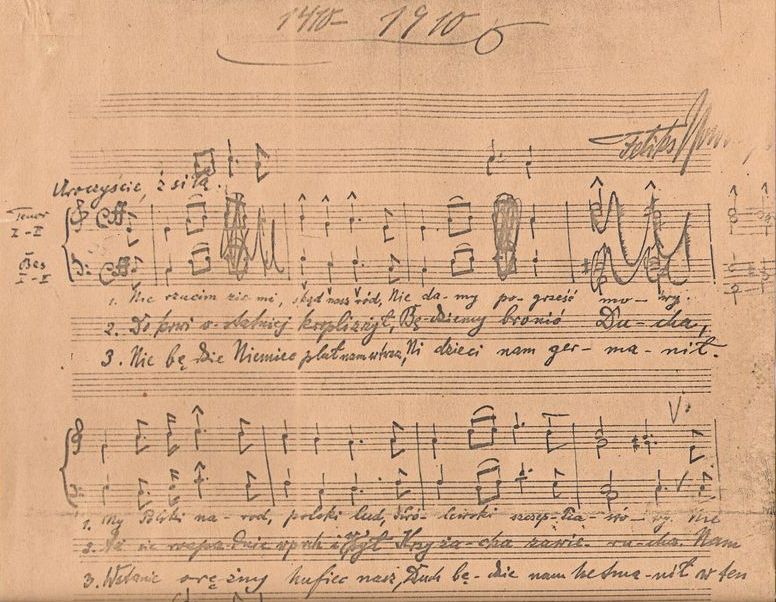 1410 - 1910
Feliks Now
Uroczyście, z siłą.
Tenor
I-II
Bas
I-II
1. Nie rzucim ziemi, skąd nasz ród, Nie da-my po-grześć mo-wy.
2. Do krwi o-statniej kropli z żył, Bę-dziemy bronić Du-cha,
3. Nie bę-dzie Niemiec pluł nam w twarz, Ni dzieci nam ger-ma-nił.
1. My Polski na-ród, polski lud, Kró-lewski szczep Pia-sto-wy. Nie
2. Aż się rozpa-dnie w proch i pył Krzyża-cka zawie-ru-cha. Nam
3. Wstanie orężny hufiec nasz, Duch bę-dzie nam hetma-nił w ten